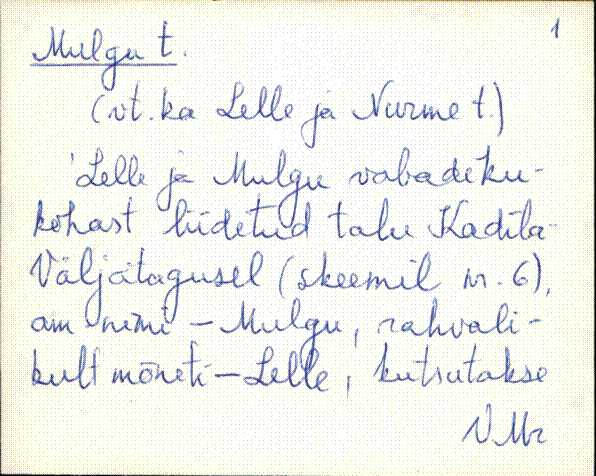 1
Mulgu t.
(vt. ka Lelle ja Nurme t.)
'Lelle ja Mulgu vabadiku-
kohast liidetud talu Kadila-
Väljätagusel (skeemil nr. 6),
am nimi - Mulgu, rahvali-
kult mõneti - Lelle, kutsutakse